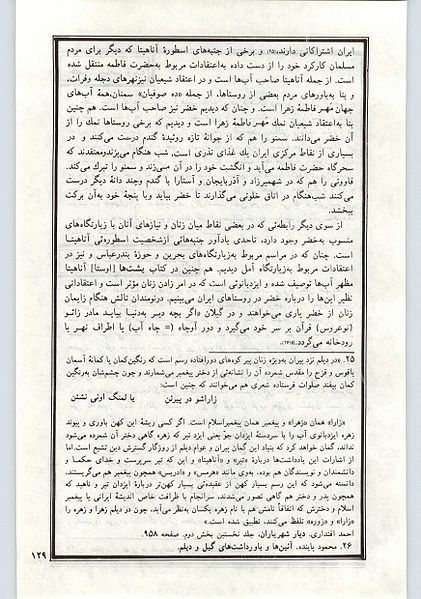 ایران اشتراکاتی دارند،(۲۵) و برخی از جنبه‌های اسطورهٔ آناهیتا که دیگر برای مردم
مسلمان کارکرد خود را از دست داده به‌اعتقادات مربوط به‌حضرت فاطمه منتقل شده
است. از جمله آناهیتا صاحب آب‌ها است و در اعتقاد شیعیان نیزنهرهای دجله وفرات،
و بنا به‌باورهای مردم بعضی از روستاها، از جمله «ده صوفیان» سمنان،همهٔ آب‌های
جهان مُهـر فاطمهٔ زهرا است. و چنان که دیدیم خضر نیز صاحب آب‌ها است. هم چنین
بنا به‌اعتقاد شیعیان نمك مهـر فاطمهٔ زهرا است و دیدیم که برخی روستاها نمك را از
آن خضر می‌دانند. سمنو را هم که از جوانهٔ تازه روئیدهٔ گندم درست می‌کنند و در
بسیاری از نقاط مرکزی ایران یك غذای نذری است، شب هنگام می‌پزندومعتقدند که
سحرگاه حضرت فاطمه می‌آید و انگشت خود را در آن می‌زند و سمنو را تبرك می‌کند.
قاووتی را هم که در شهمیرزاد و آذربایجان و آستارا با گندم وچند دانهٔ دیگر درست
می‌کنند شب‌هنگام در اتاق خلوتی می‌گذارند تا خضر بیاید وبا پنجهٔ خود به‌آن برکت
ببخشد.
از سوی دیگر رابطه‌ئی که در بعضی نقاط میان زنان و نیازهای آنان با زیارتگاه‌های
منسوب به‌خضر وجود دارد، تاحدی یادآور جنبه‌هائی ازشخصیت اسطوره‌ئی آناهیتـا
است. چنان که در مراسم مربوط به‌زیارتگاه‌های بحرین و حوزهٔ بندرعباس و نیز در
اعتقادات مربوط به‌زیارتگاه آمل دیدیم. هم چنین در کتاب یشت‌ها [اوستا] آناهیتا
مظهر آب‌ها توصیف شده و ایزدبانوئی است که در امر زادن زنان مؤثر است و اعتقاداتی
نظیر این‌ها را درباره خضر در روستاهای ایران می‌بینیم. درتومندان تالش هنگام زایمان
زنان از خضر یاری می‌خواهند و در گیلان «اگر بچه دیـر به‌دنیـا بیایـد مادر زائـو
(نوعروس) قرآن بر سر خود می‌گیرد و دور آوجاه (= چاه آب) یا اطراف نهـر یا
رودخانه می‌گردد.»(۲۶).
۲۵. «در دیلم نزد پیران به‌ویژه زنان پیر کوه‌های دورافتاده رسم است که رنگین‌کمان یا کمانهٔ آسمان
یاقوس و قزح را مقدس شمرده آن را نشانه‌ئی از دختر پیغمبر می‌شمارند و چون چشم‌شان به‌رنگین
کمان بیفتد صلوات فرستاده شعری هم می‌خوانند که چنین است:
زاراشو در پیرنن یا لمنگ اونی نشتن
«زارا» همان «زهرا» و پیغمبر همان پیغمبراسلام است. اگر کسی ریشهٔ این کهن باوری و پیوند
زهره ایزدبانوی آب را با سردستهٔ ایزدان جوّ یعنی ایزد تیر که زهره گاهی دختر آن شمرده می‌شود
نداند، گمان خواهد کرد که بنیاد این گمان پیران و عوام دیلم از روزگار گسترش دین تشیع است.اما
از اشارات این یادداشت‌ها دربارهٔ «تیر» و «آناهیتا» و این که تیر سرپرست و خدای حکما و
دانشمندان و نویسندگان هم بوده، به‌وی مانند «هرمس» و «ادریس» همچون پیغمبر هم می‌گریستند،
دانسته می‌شود که این رسم بسیار کهن از عقیده‌ئی بسیار کهن‌تر دربارهٔ ایزدان تیر و ناهید که
همچون پدر و دختر هم گاهی تصور می‌شدند، سرانجام با ظرافت خاص اندیشهٔ ایرانی با پیغمبر
اسلام و دخترش که اتفاقاً نامش هم با نام زهره یکسان به‌نظر می‌آید، چون در دیلم زهرا و زهره را
«زارا» و «زوره» تلفظ می‌کنند، تطبیق شده است.»
احمد اقتداری. دیار شهریاران. جلد نخستین بخش دوم. صفحه ۹۵۸.
۲۶. محمود پاینده. آئین‌ها و باورداشت‌های گیل و دیلم.
۱۲۹